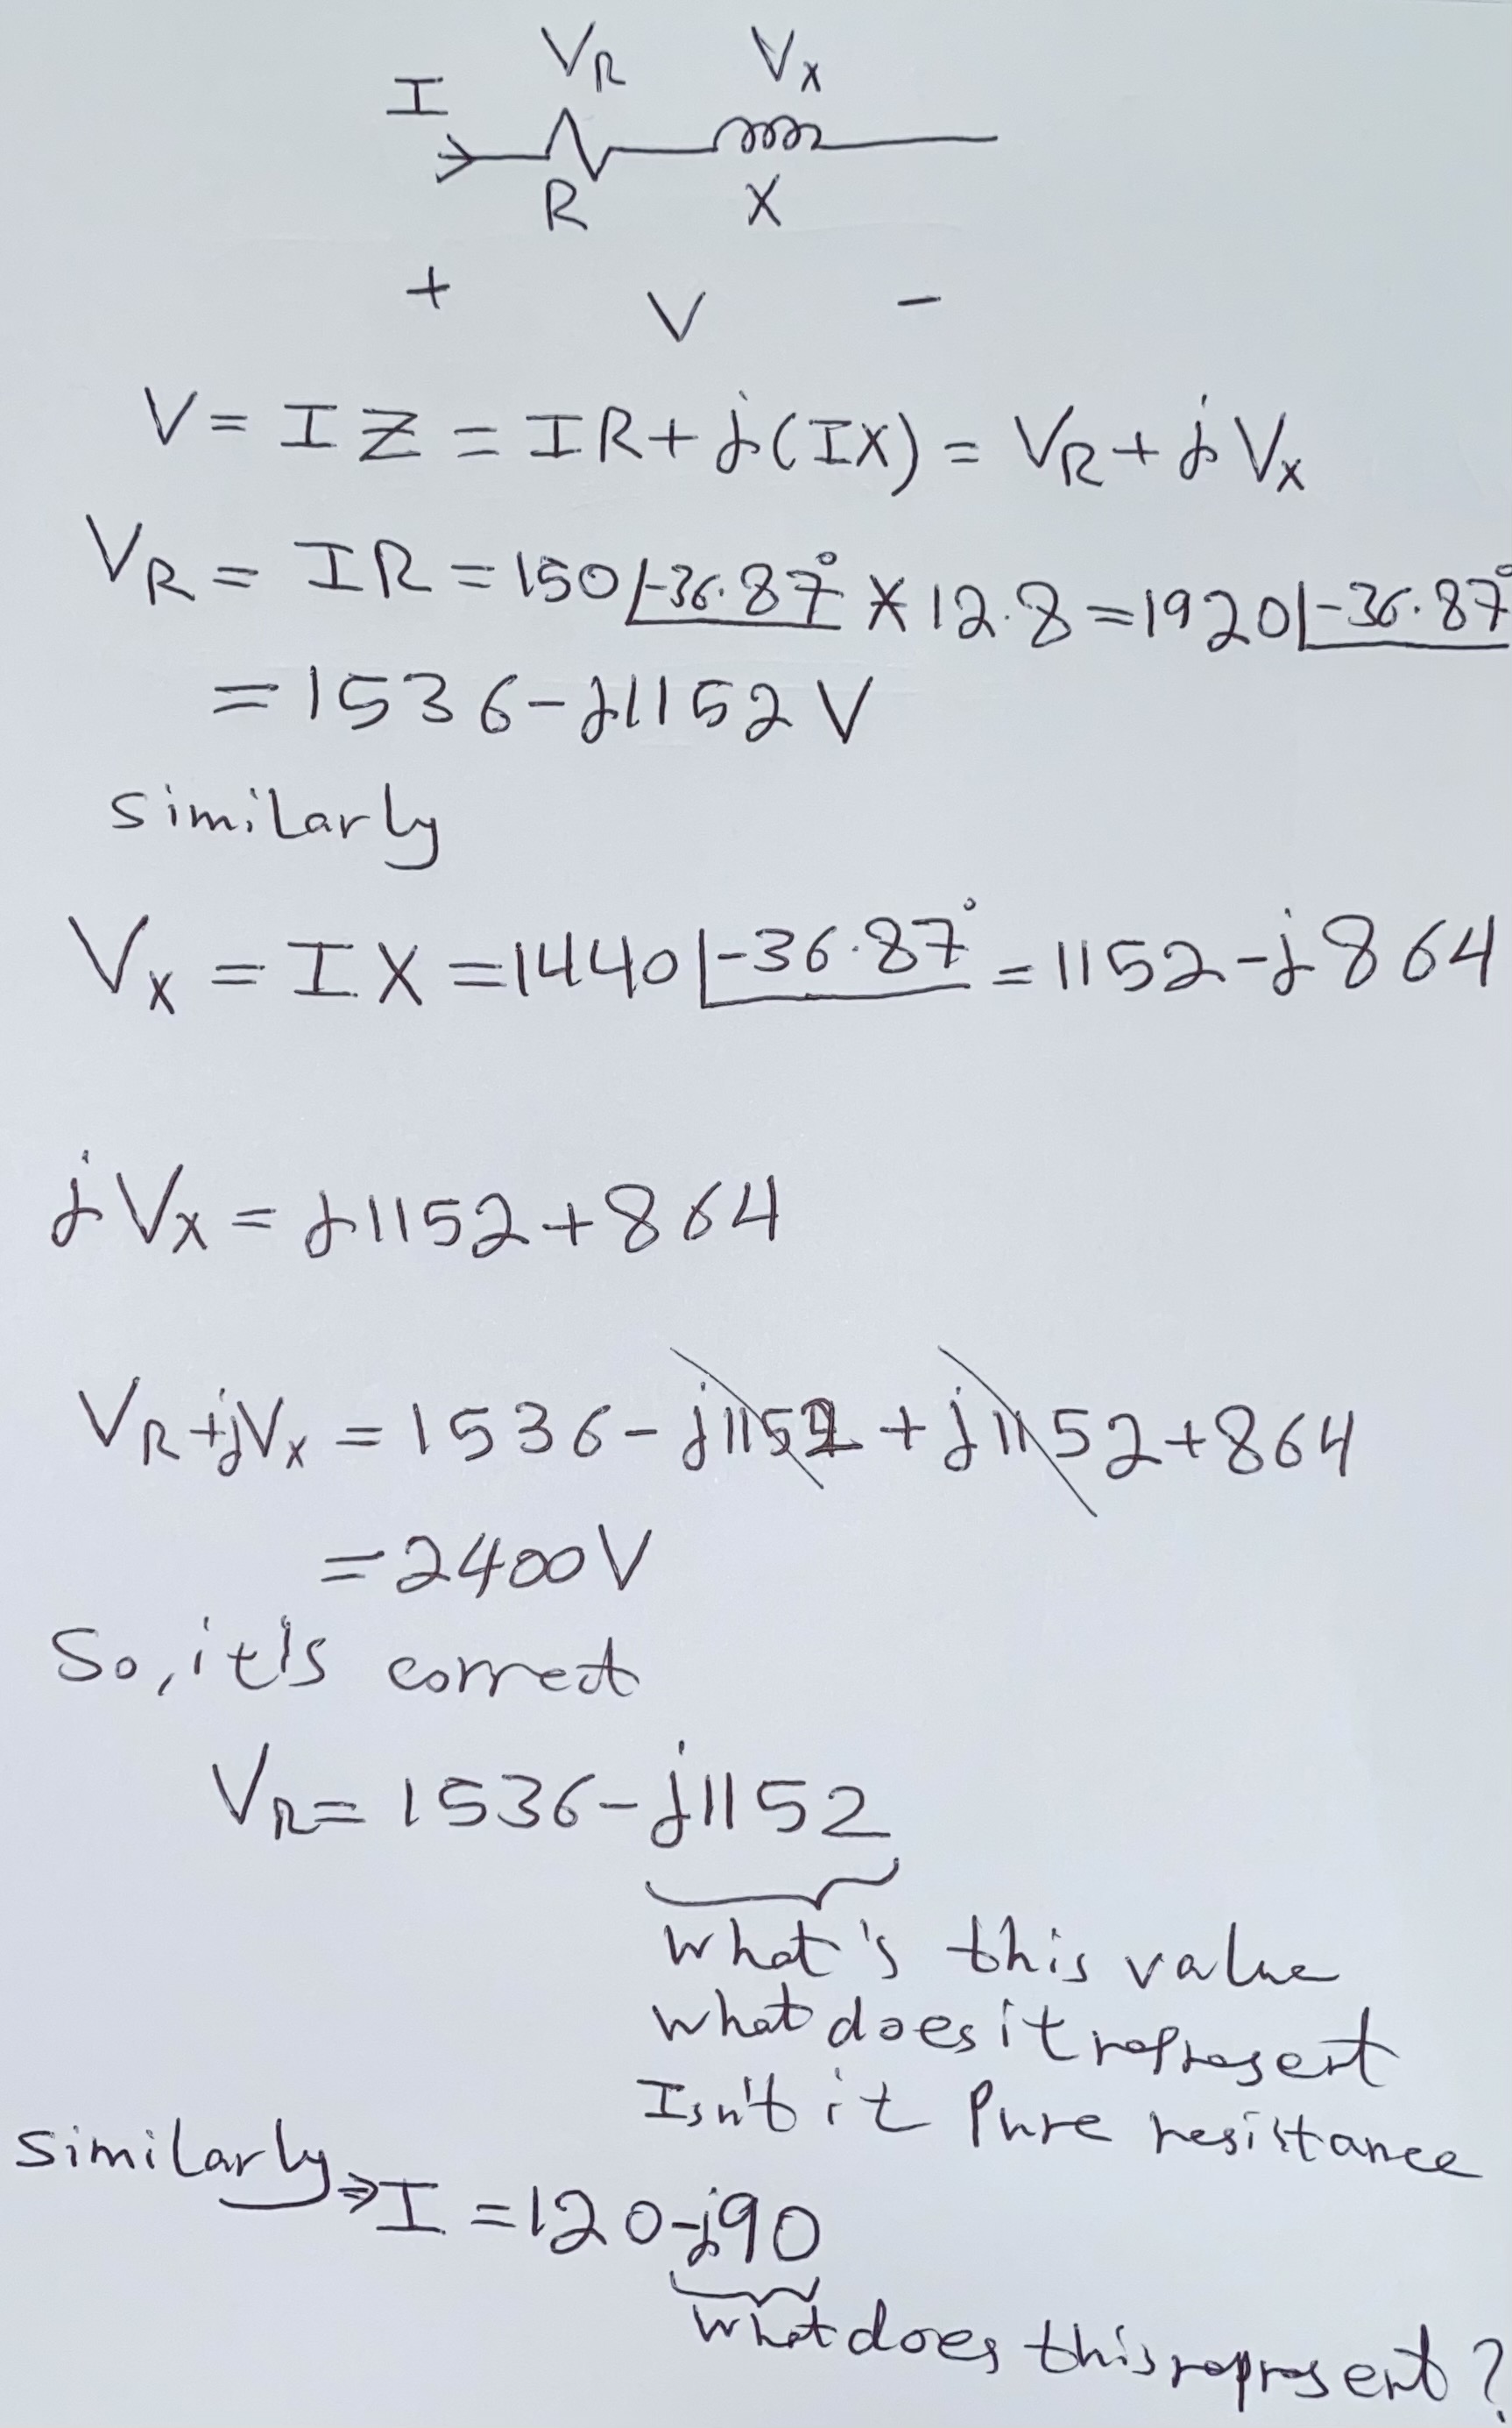 V_R V_X
I
R X
+ V −
V = IZ = IR + j(IX) = V_R + jV_X
V_R = IR = 150∠-36.87° * 12.8 = 1920∠-36.87°
= 1536 - j1152 V
similarly
V_X = IX = 1440∠-36.87° = 1152 - j864
jV_X = j1152 + 864
V_R + jV_X = 1536 - j1152 + j1152 + 864
= 2400 V
So, it's correct
V_R = 1536 - j1152
what's this value
what does it represent
Isn't it Pure resistance
similarly ⇒ I = 120 - j90
what does this represent?